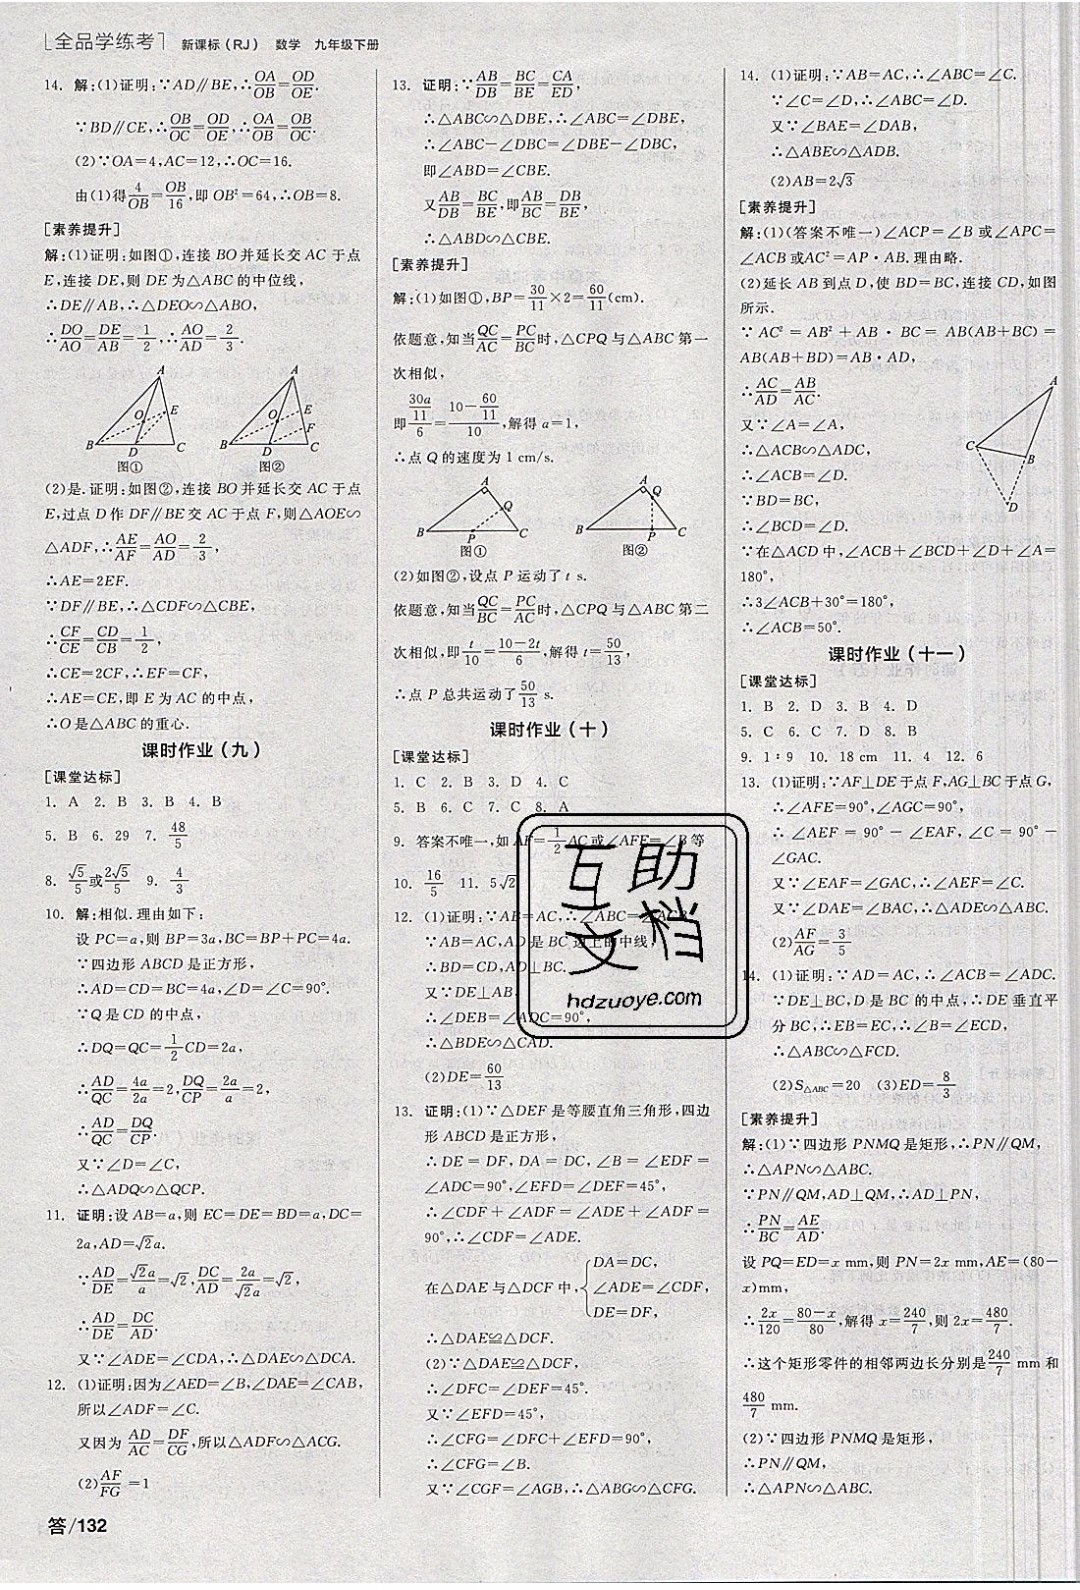 全品学练考 新课标(RJ) 数学 九年级下册
14. 解:(1)证明:∵AD∥BE,∴OA/OB=OD/OE.
∵BD∥CE,∴OB/OC=OD/OE,∴OA/OB=OB/OC.
(2)∵OA=4,AC=12,∴OC=16.
由(1)得4/OB=OB/16,即OB²=64,∴OB=8.
[素养提升]
解:(1)证明:如图①,连接BO并延长交AC于点
E,连接DE,则DE为△ABC的中位线,
∴DE∥AB,∴△DEO∽△ABO,
∴DO/AO=DE/AB=1/2,∴AO/AD=2/3.
A O E B D C 图①
A O E F B D C 图②
(2)是.证明:如图②,连接BO并延长交AC于点
E,过点D作DF∥BE交AC于点F,则△AOE∽
△ADF,∴AE/AF=AO/AD=2/3,
∴AE=2EF.
∵DF∥BE,∴△CDF∽△CBE,
∴CF/CE=CD/CB=1/2,
∴CE=2CF,∴EF=CF,
∴AE=CE,即E为AC的中点,
∴O是△ABC的重心.
课时作业(九)
[课堂达标]
1. A 2. B 3. B 4. B
5. B 6. 29 7. 48/5
8. √5/5或2√5/5 9. 4/3
10. 解:相似.理由如下:
设PC=a,则BP=3a,BC=BP+PC=4a.
∵四边形ABCD是正方形,
∴AD=CD=BC=4a,∠D=∠C=90°.
∵Q是CD的中点,
∴DQ=QC=1/2CD=2a,
∴AD/QC=4a/2a=2,DQ/CP=2a/a=2,
∴AD/QC=DQ/CP.
又∵∠D=∠C,
∴△ADQ∽△QCP.
11. 证明:设AB=a,则EC=DE=BD=a,DC=
2a,AD=√2a.
∵AD/DE=√2a/a=√2,DC/AD=2a/√2a=√2,
∴AD/DE=DC/AD.
又∵∠ADE=∠CDA,∴△DAE∽△DCA.
12. (1)证明:因为∠AED=∠B,∠DAE=∠CAB,
所以∠ADF=∠C.
又因为AD/AC=DF/CG,所以△ADF∽△ACG.
(2)AF/FG=1
答/132
13. 证明:∵AB/DB=BC/BE=CA/ED,
∴△ABC∽△DBE,∴∠ABC=∠DBE,
∴∠ABC-∠DBC=∠DBE-∠DBC,
即∠ABD=∠CBE.
又AB/DB=BC/BE,即AB/BC=DB/BE,
∴△ABD∽△CBE.
[素养提升]
解:(1)如图①,BP=30/11×2=60/11(cm).
依题意,知当QC/AC=PC/BC时,△CPQ与△ABC第一
次相似,
即(30a/11)/6=(10-60/11)/10,解得a=1,
∴点Q的速度为1 cm/s.
A Q B P C 图①
A Q B P C 图②
(2)如图②,设点P运动了t s.
依题意,知当QC/BC=PC/AC时,△CPQ与△ABC第二
次相似,即t/10=(10-2t)/6,解得t=50/13,
∴点P总共运动了50/13 s.
课时作业(十)
[课堂达标]
1. C 2. B 3. D 4. C
5. B 6. C 7. C 8. A
9. 答案不唯一,如AF=1/2AC或∠AFE=∠B等
10. 16/5 11. 5√2
12. (1)证明:∵AB=AC,∴∠ABC=∠ACB.
∵AB=AC,AD是BC边上的中线,
∴BD=CD,AD⊥BC.
又∵DE⊥AB,
∴∠DEB=∠ADC=90°,
∴△BDE∽△CAD.
(2)DE=60/13
13. 证明:(1)∵△DEF是等腰直角三角形,四边
形ABCD是正方形,
∴DE=DF,DA=DC,∠B=∠EDF=
∠ADC=90°,∠EFD=∠DEF=45°,
∴∠CDF+∠ADF=∠ADE+∠ADF=
90°,∴∠CDF=∠ADE.
在△DAE与△DCF中,{DA=DC,
∠ADE=∠CDF,
DE=DF,
∴△DAE≌△DCF.
(2)∵△DAE≌△DCF,
∴∠DFC=∠DEF=45°.
又∵∠EFD=45°,
∴∠CFG=∠DFC+∠EFD=90°,
∴∠CFG=∠B.
又∵∠CGF=∠AGB,∴△ABG∽△CFG.
14. (1)证明:∵AB=AC,∴∠ABC=∠C.
∵∠C=∠D,∴∠ABC=∠D.
又∵∠BAE=∠DAB,
∴△ABE∽△ADB.
(2)AB=2√3
[素养提升]
解:(1)(答案不唯一)∠ACP=∠B或∠APC=
∠ACB或AC²=AP·AB.理由略.
(2)延长AB到点D,使BD=BC,连接CD,如图
所示.
∵AC²=AB²+AB·BC=AB(AB+BC)=
AB(AB+BD)=AB·AD,
∴AC/AD=AB/AC.
又∵∠A=∠A,
∴△ACB∽△ADC,
∴∠ACB=∠D.
∵BD=BC,
∴∠BCD=∠D.
A C B D
∵在△ACD中,∠ACB+∠BCD+∠D+∠A=
180°,
∴3∠ACB+30°=180°,
∴∠ACB=50°.
课时作业(十一)
[课堂达标]
1. B 2. D 3. B 4. D
5. C 6. C 7. D 8. B
9. 1∶9 10. 18 cm 11. 4 12. 6
13. (1)证明:∵AF⊥DE于点F,AG⊥BC于点G,
∴∠AFE=90°,∠AGC=90°,
∴∠AEF=90°-∠EAF,∠C=90°-
∠GAC.
又∵∠EAF=∠GAC,∴∠AEF=∠C.
又∵∠DAE=∠BAC,∴△ADE∽△ABC.
(2)AF/AG=3/5
14. (1)证明:∵AD=AC,∴∠ACB=∠ADC.
∵DE⊥BC,D是BC的中点,∴DE垂直平
分BC,∴EB=EC,∴∠B=∠ECD,
∴△ABC∽△FCD.
(2)S△ABC=20 (3)ED=8/3
[素养提升]
解:(1)∵四边形PNMQ是矩形,∴PN∥QM,
∴△APN∽△ABC.
∵PN∥QM,AD⊥QM,∴AD⊥PN,
∴PN/BC=AE/AD.
设PQ=ED=x mm,则PN=2x mm,AE=(80-
x)mm,
∴2x/120=(80-x)/80,解得x=240/7,则2x=480/7.
∴这个矩形零件的相邻两边长分别是240/7 mm和
480/7 mm.
(2)∵四边形PNMQ是矩形,
∴PN∥QM,
∴△APN∽△ABC.
互助
文档
hdzuoye.com